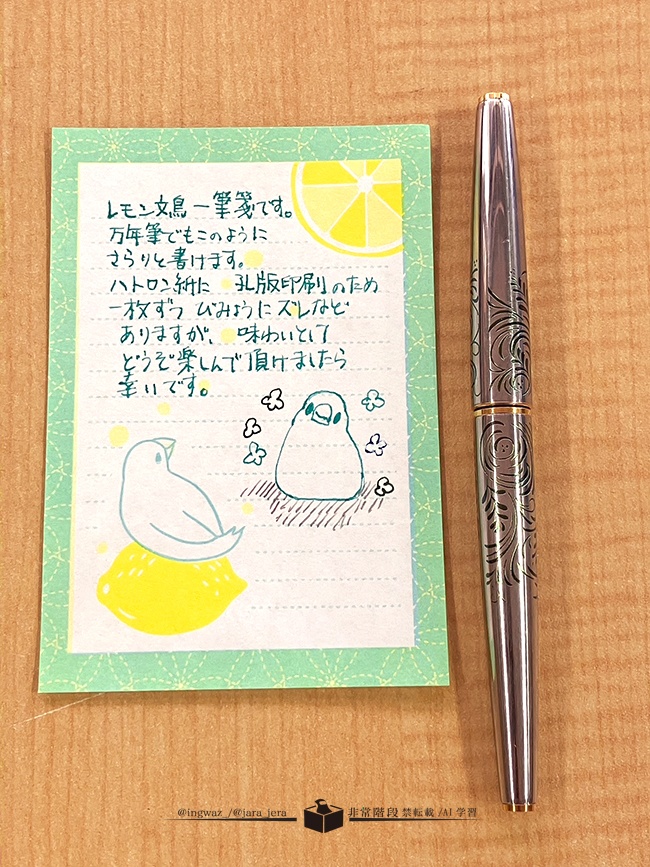 レモン文鳥 一筆箋です。
万年筆でもこのように
さらりと書けます。
ハトロン紙に 孔版印刷のため
一枚ずつ びみょうにズレなど
ありますが、 味わいとして
どうぞ楽しんで頂けましたら
幸いです。
@ingwaz_/@jara_jera 非常階段 禁転載/AI学習